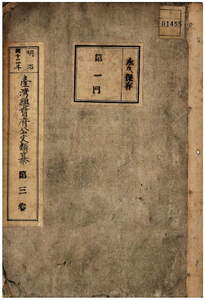 01455
永久保存
第一門
明治
臺灣總督府公文類纂 第三卷